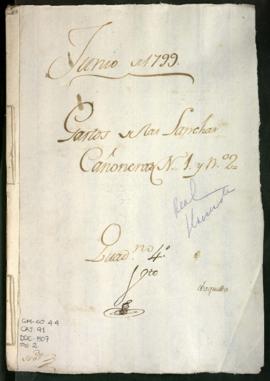 Junio de 1799
Gastos de las Lanchas
Cañoneras N.1. y n.º 2
Real
Hacienda
Quad.no 4.º
GM-CO 44
CAJ. 91
DOC. 807
Fo 2